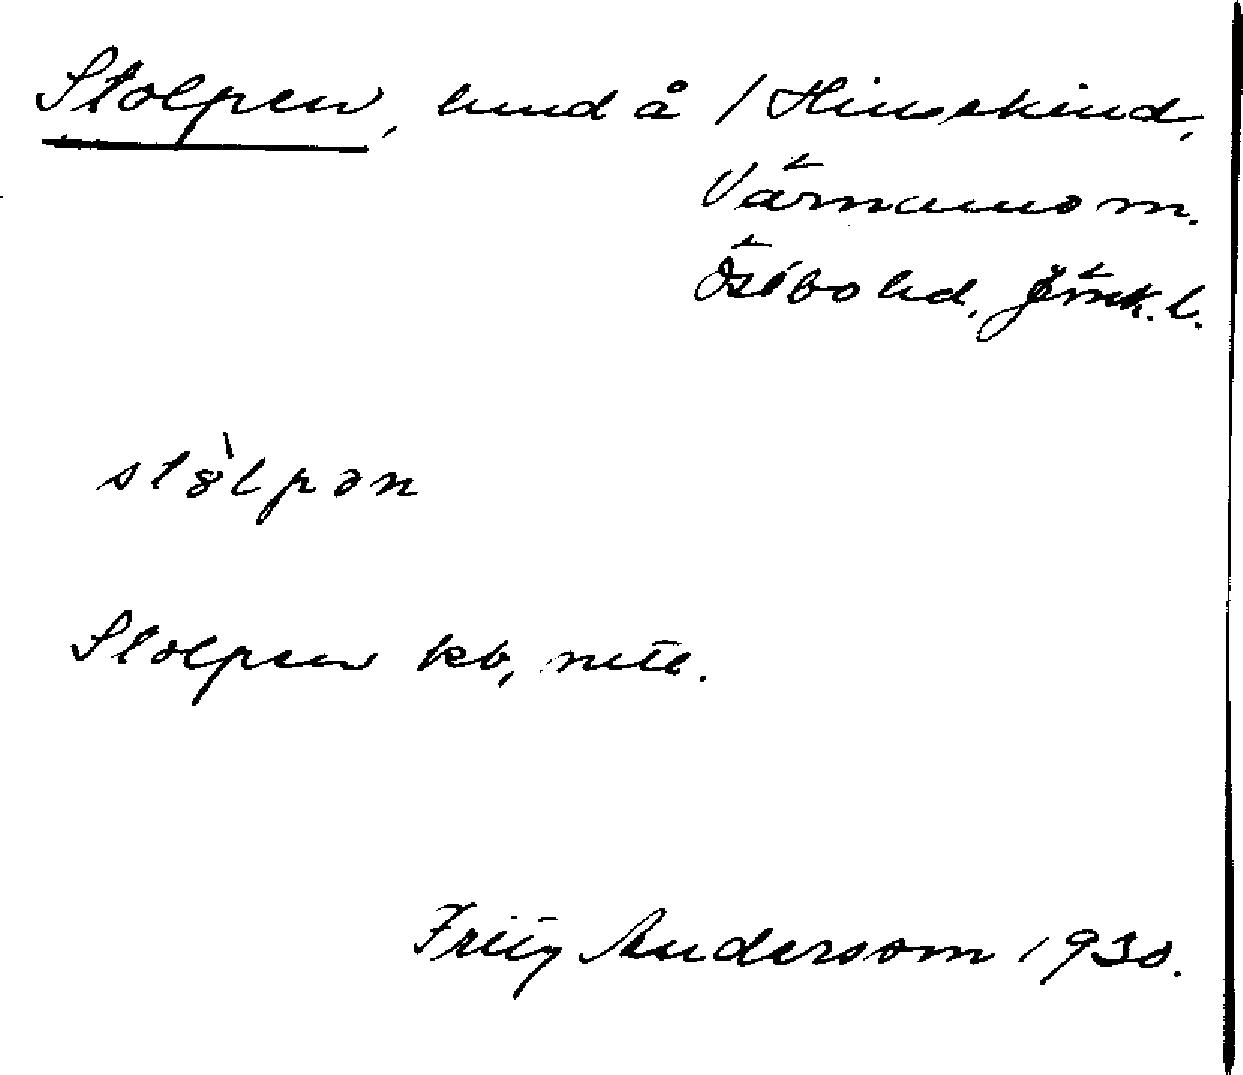 Stolpen, lund å / Hinsekind,
Värnamo sn.
Östbo hd, Jönk. l.
stȣ̀lpən
Stolpen kb, mtl.
Fritz Andersson 1930.